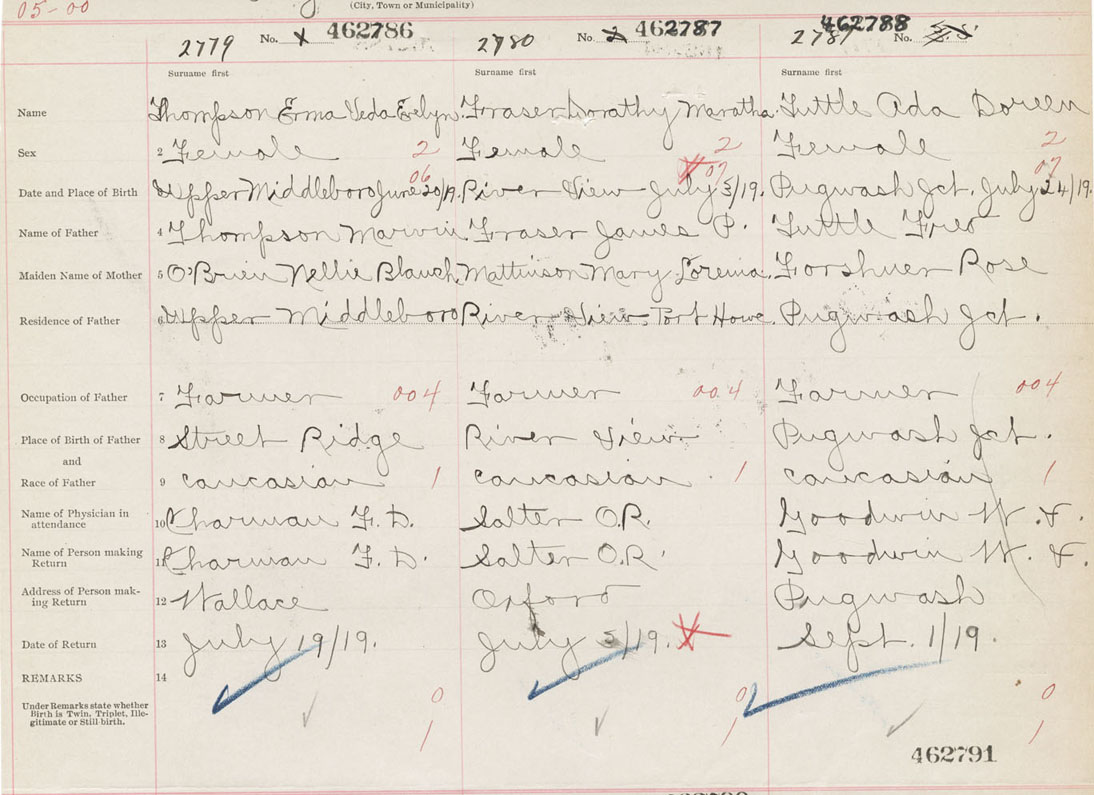 05-00
(City, Town or Municipality)
2779 No. 462786 2780 No. 2 462787 462788 No.
Surname first Surname first Surname first
Name Thompson Erma Veda Evelyn. Fraser Dorathy Maratha. Tuttle Ada Doreen
Sex 2 Female 2 Female 2 Female 2
06 07 07
Date and Place of Birth Upper Middleboro June 20/19. River View July 5/19. Pugwash Jct. July 24/19.
Name of Father 4 Thompson Marvin. Fraser James P. Tuttle Fred
Maiden Name of Mother 5 O'Brien Nellie Blanch. Mattinson Mary Lorenia. Forshner Rose
Residence of Father 6 Upper Middleboro River View Port Howe. Pugwash Jct.
Occupation of Father 7 Farmer 004 Farmer 004 Farmer 004
Place of Birth of Father 8 Street Ridge River View Pugwash Jct.
and
Race of Father 9 caucasian 1 caucasian 1 caucasian 1
Name of Physician in
attendance 10 Charman F. D. Salter O.R. Goodwin W. F.
Name of Person making
Return 11 Charman F. D. Salter O.R. Goodwin W. F.
Address of Person mak-
ing Return 12 Wallace Oxford Pugwash
Date of Return 13 July 19/19. July 5/19. Sept. 1/19.
REMARKS 14
Under Remarks state whether
Birth is Twin, Triplet, Ille-
gitimate or Still-birth.
0 0 0
1 1 1
462791